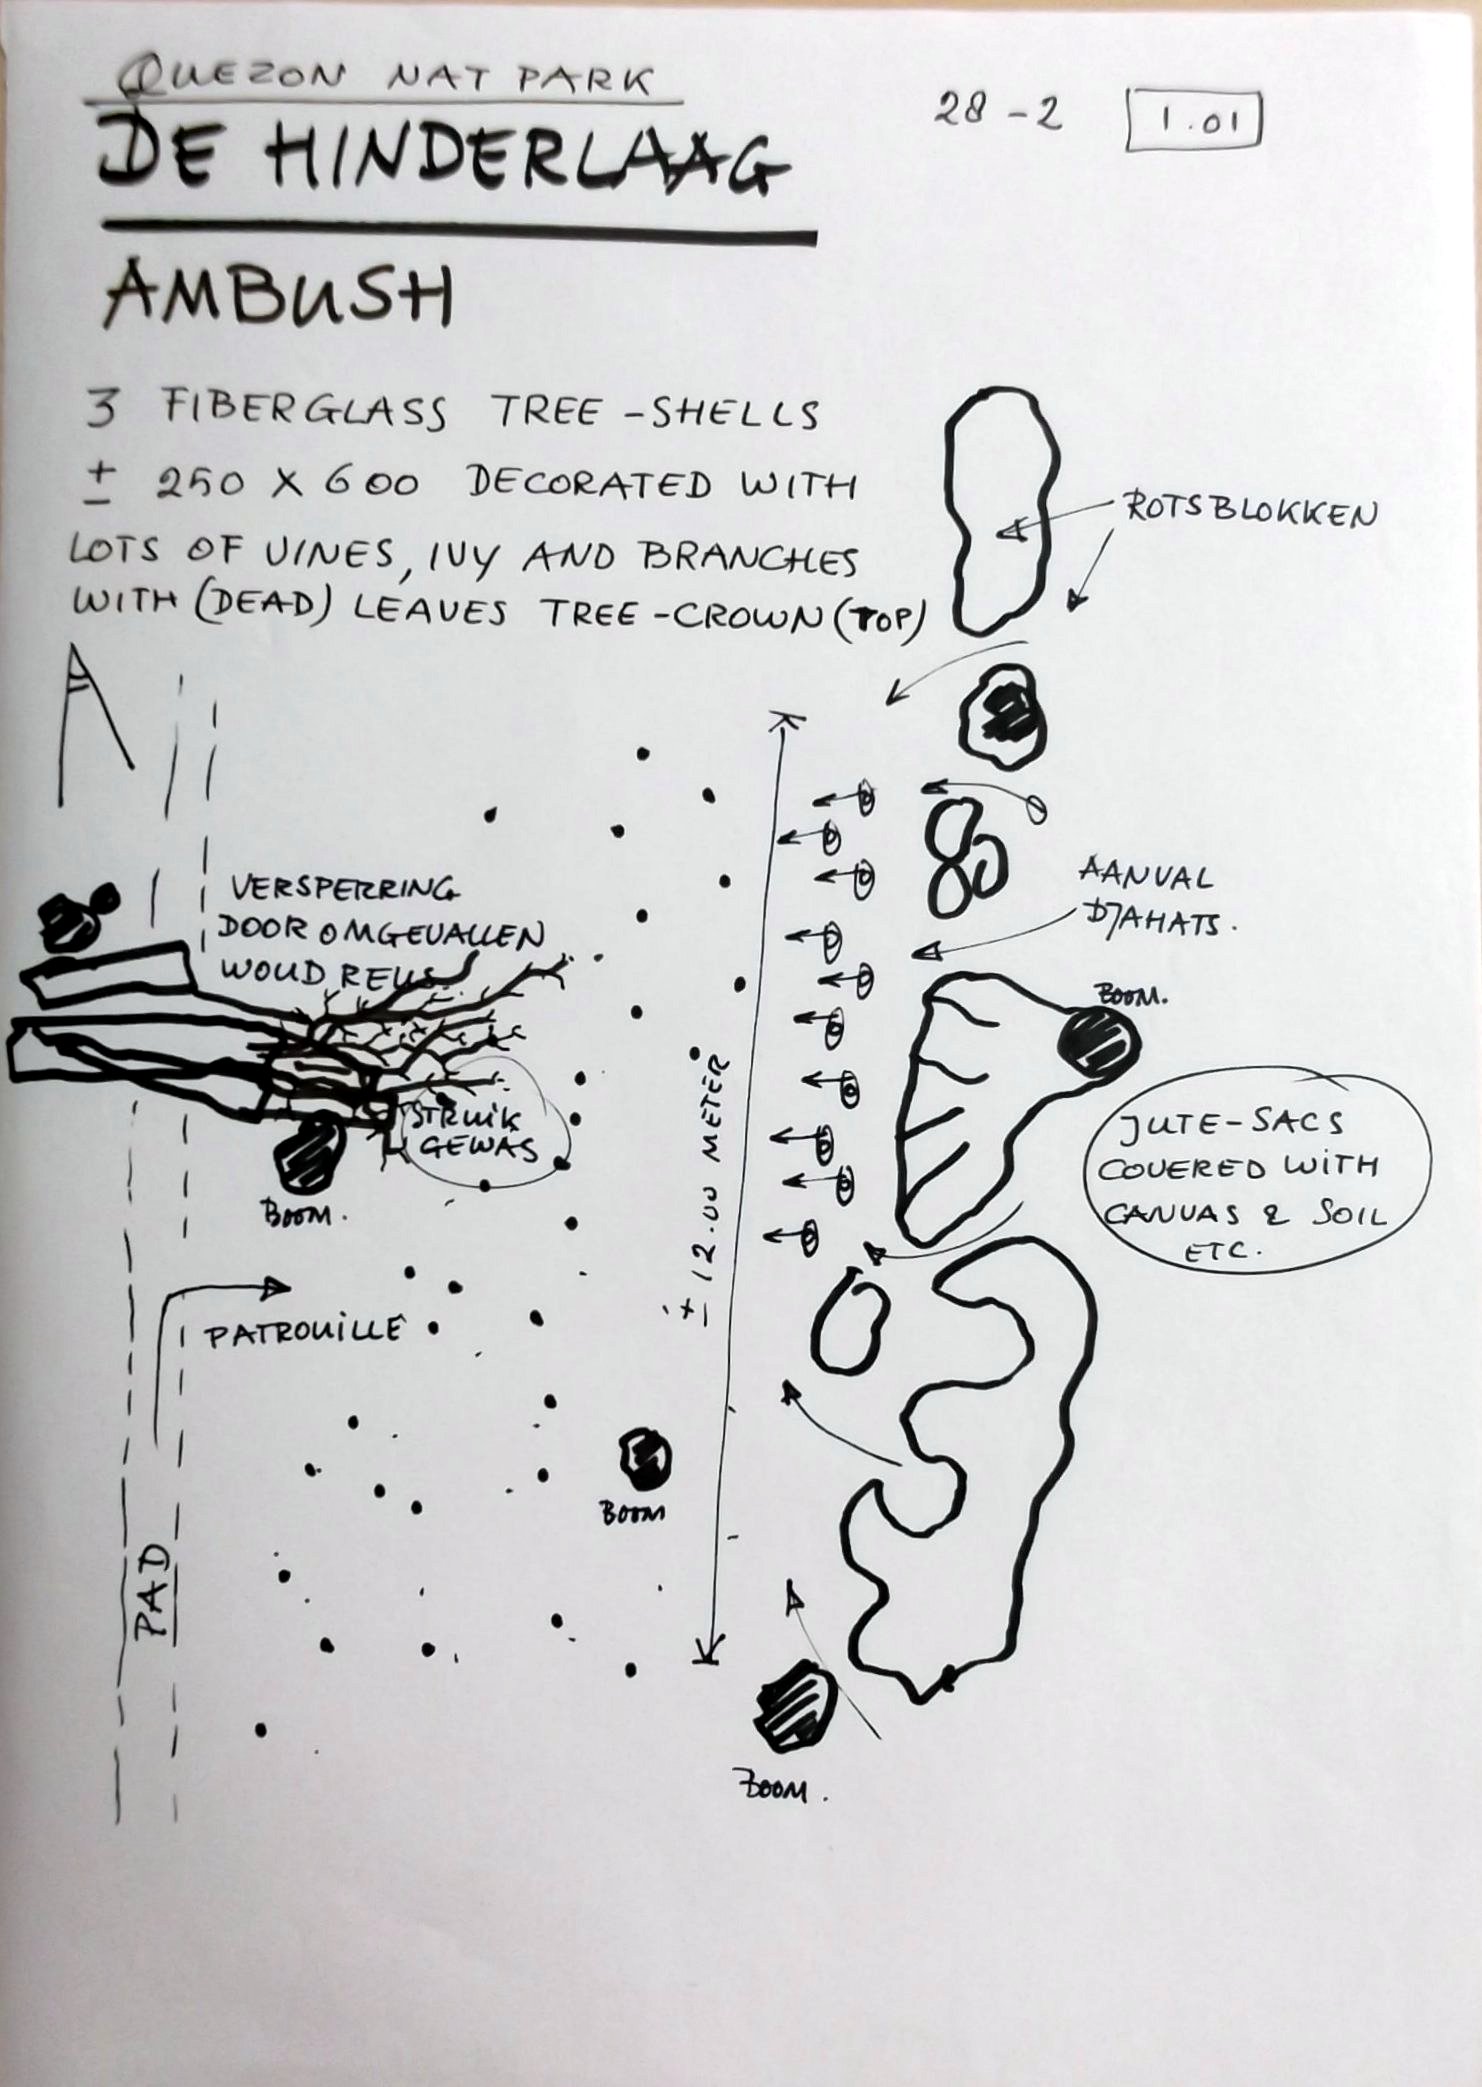 QUEZON NAT PARK
28-2 1.01
DE HINDERLAAG
AMBUSH
3 FIBERGLASS TREE-SHELLS
± 250 X 600 DECORATED WITH
LOTS OF VINES, IVY AND BRANCHES
WITH (DEAD) LEAVES TREE-CROWN (TOP)
ROTSBLOKKEN
VERSPERRING
DOOR OMGEVALLEN
WOUDREUS.
AANVAL
DJAHATS.
BOOM.
STRUIK
GEWAS
BOOM.
JUTE-SACS
COVERED WITH
CANVAS & SOIL
ETC.
± 12.00 METER
PATROUILLE
BOOM
PAD
BOOM.